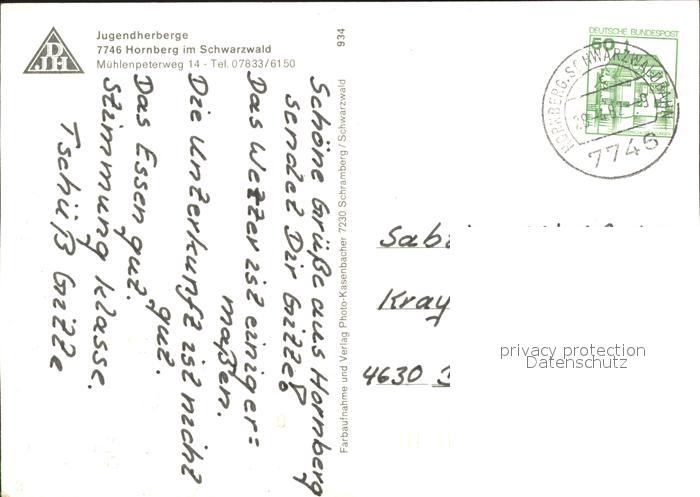 Jugendherberge
7746 Hornberg im Schwarzwald
Mühlenpeterweg 14 - Tel. 07833/6150
934
Farbaufnahme und Verlag Photo-Kasenbacher 7230 Schramberg / Schwarzwald
Schöne Grüße aus Hornberg
sendet Dir Gitte
Das Wetter ist einiger=
maßen.
Die Unterkunft ist nicht
gut.
Das Essen gut.
Stimmung klasse.
Tschüß Gitte
DJH
DEUTSCHE BUNDESPOST
50
HORNBERG, SCHWARZWALDBAHN
7746
Sab
Kray
4630
privacy protection
Datenschutz